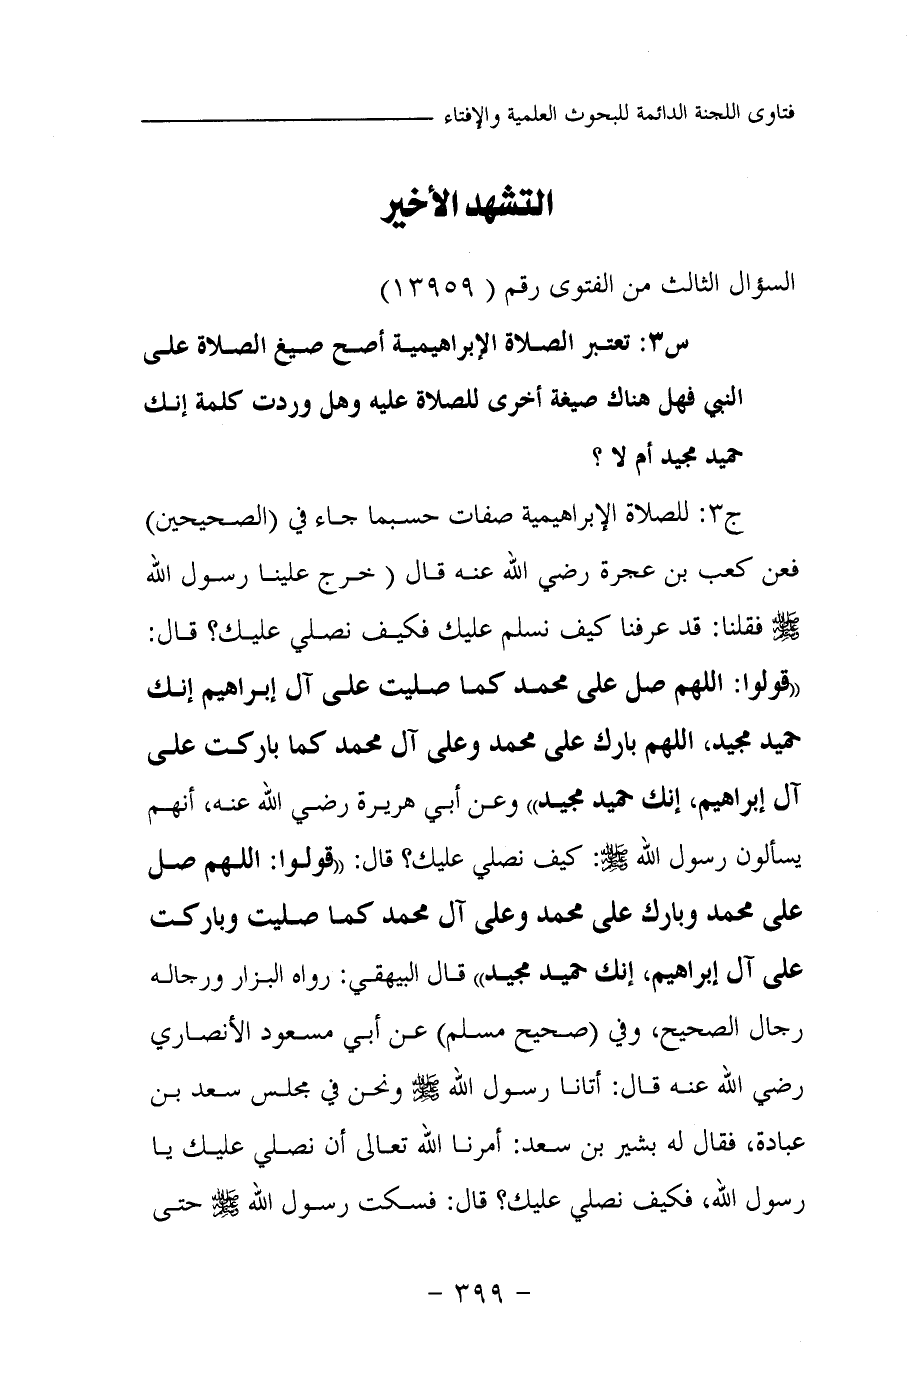 فتاوى اللجنة الدائمة للبحوث العلمية والإفتاء
التشهد الأخير
السؤال الثالث من الفتوى رقم ( ١٣٩٥٩)
س٣: تعتبر الصلاة الإبراهيمية أصح صيغ الصلاة على
النبي فهل هناك صيغة أخرى للصلاة عليه وهل وردت كلمة إنك
حميد مجيد أم لا ؟
ج٣: للصلاة الإبراهيمية صفات حسبما جاء في (الصحيحين)
فعن كعب بن عجرة رضي الله عنه قال ( خرج علينا رسول الله
ﷺ فقلنا: قد عرفنا كيف نسلم عليك فكيف نصلي عليك؟ قال:
((قولوا: اللهم صل على محمد كما صليت على آل إبراهيم إنك
حميد مجيد، اللهم بارك على محمد وعلى آل محمد كما باركت على
آل إبراهيم، إنك حميد مجيد)) وعن أبي هريرة رضي الله عنه، أنهم
يسألون رسول الله ﷺ: كيف نصلي عليك؟ قال: ((قولوا: اللهم صل
على محمد وبارك على محمد وعلى آل محمد كما صليت وباركت
على آل إبراهيم، إنك حميد مجيد)) قال البيهقي: رواه البزار ورجاله
رجال الصحيح، وفي (صحيح مسلم) عن أبي مسعود الأنصاري
رضي الله عنه قال: أتانا رسول الله ﷺ ونحن في مجلس سعد بن
عبادة، فقال له بشير بن سعد: أمرنا الله تعالى أن نصلي عليك يا
رسول الله، فكيف نصلي عليك؟ قال: فسكت رسول الله ﷺ حتى
- ٣٩٩ -